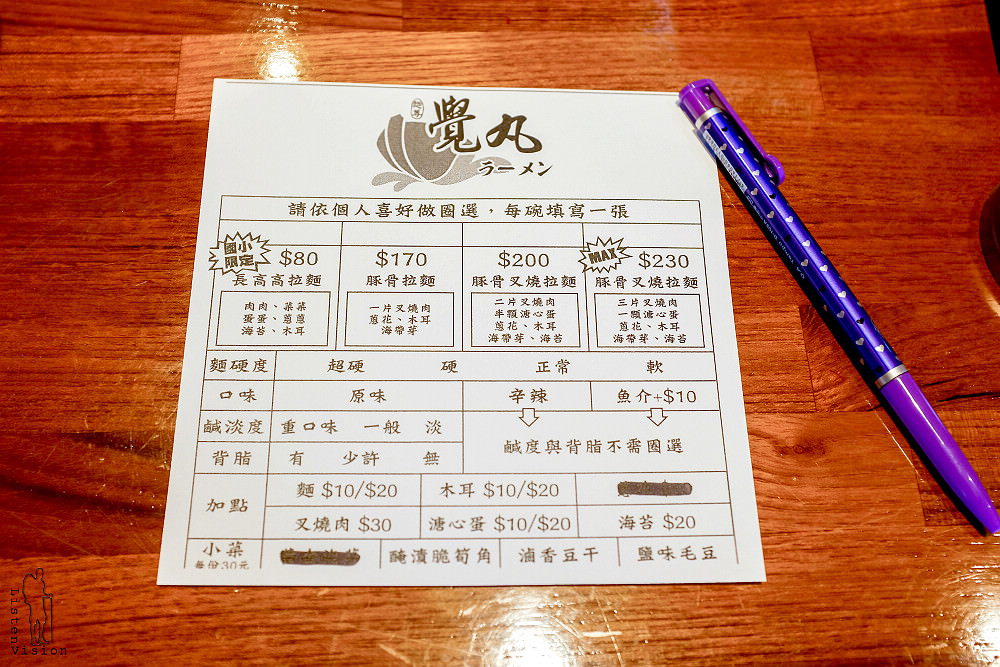 覺丸
ラーメン
請依個人喜好做圈選,每碗填寫一張
國小限定 $80 $170 $200 MAX $230
長高高拉麵 豚骨拉麵 豚骨叉燒拉麵 豚骨叉燒拉麵
肉肉、菜菜
蛋蛋、蔥蔥
海苔、木耳
一片叉燒肉
蔥花、木耳
海帶芽
二片叉燒肉
半顆溏心蛋
蔥花、木耳
海帶芽、海苔
三片叉燒肉
一顆溏心蛋
蔥花、木耳
海帶芽、海苔
麵硬度 超硬 硬 正常 軟
口味 原味 辛辣 魚介+$10
鹹淡度 重口味 一般 淡
鹹度與背脂不需圈選
背脂 有 少許 無
加點 麵 $10/$20 木耳 $10/$20
叉燒肉 $30 溏心蛋 $10/$20 海苔 $20
小菜 醃漬脆筍角 滷香豆干 鹽味毛豆
每份30元
Listen
Vision